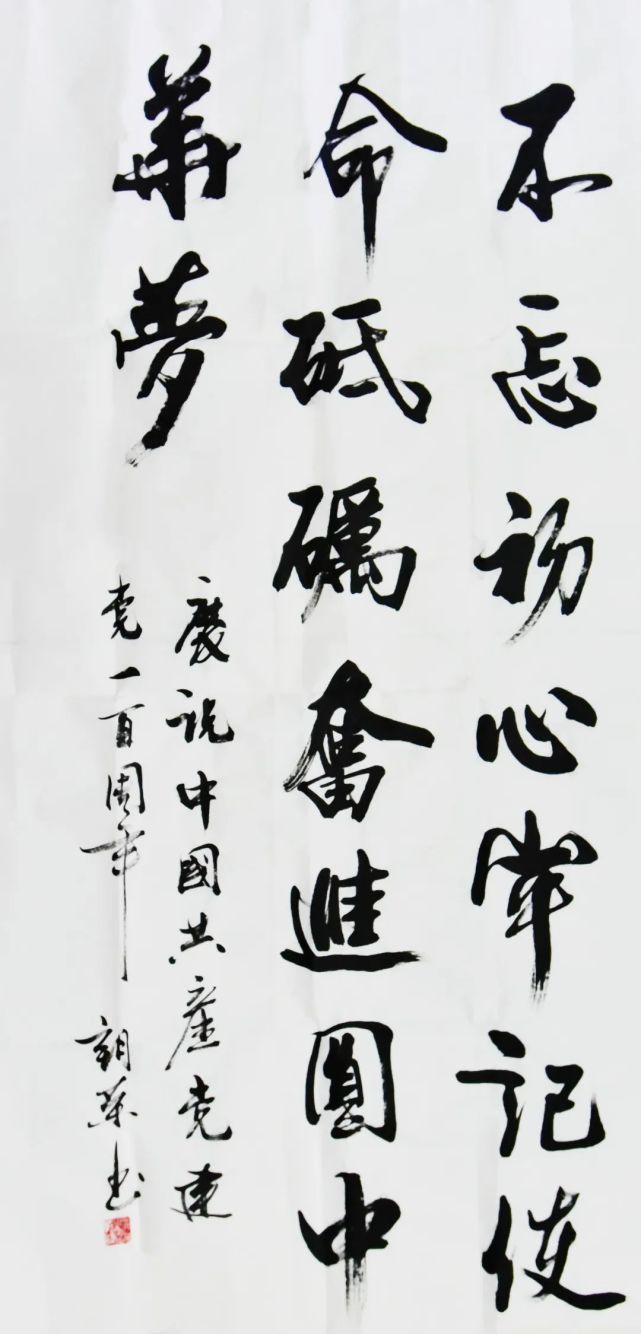 不忘初心牢記使
命砥礪奮進圓中
華夢
慶祝中國共產党建
党一百周年 朝英書